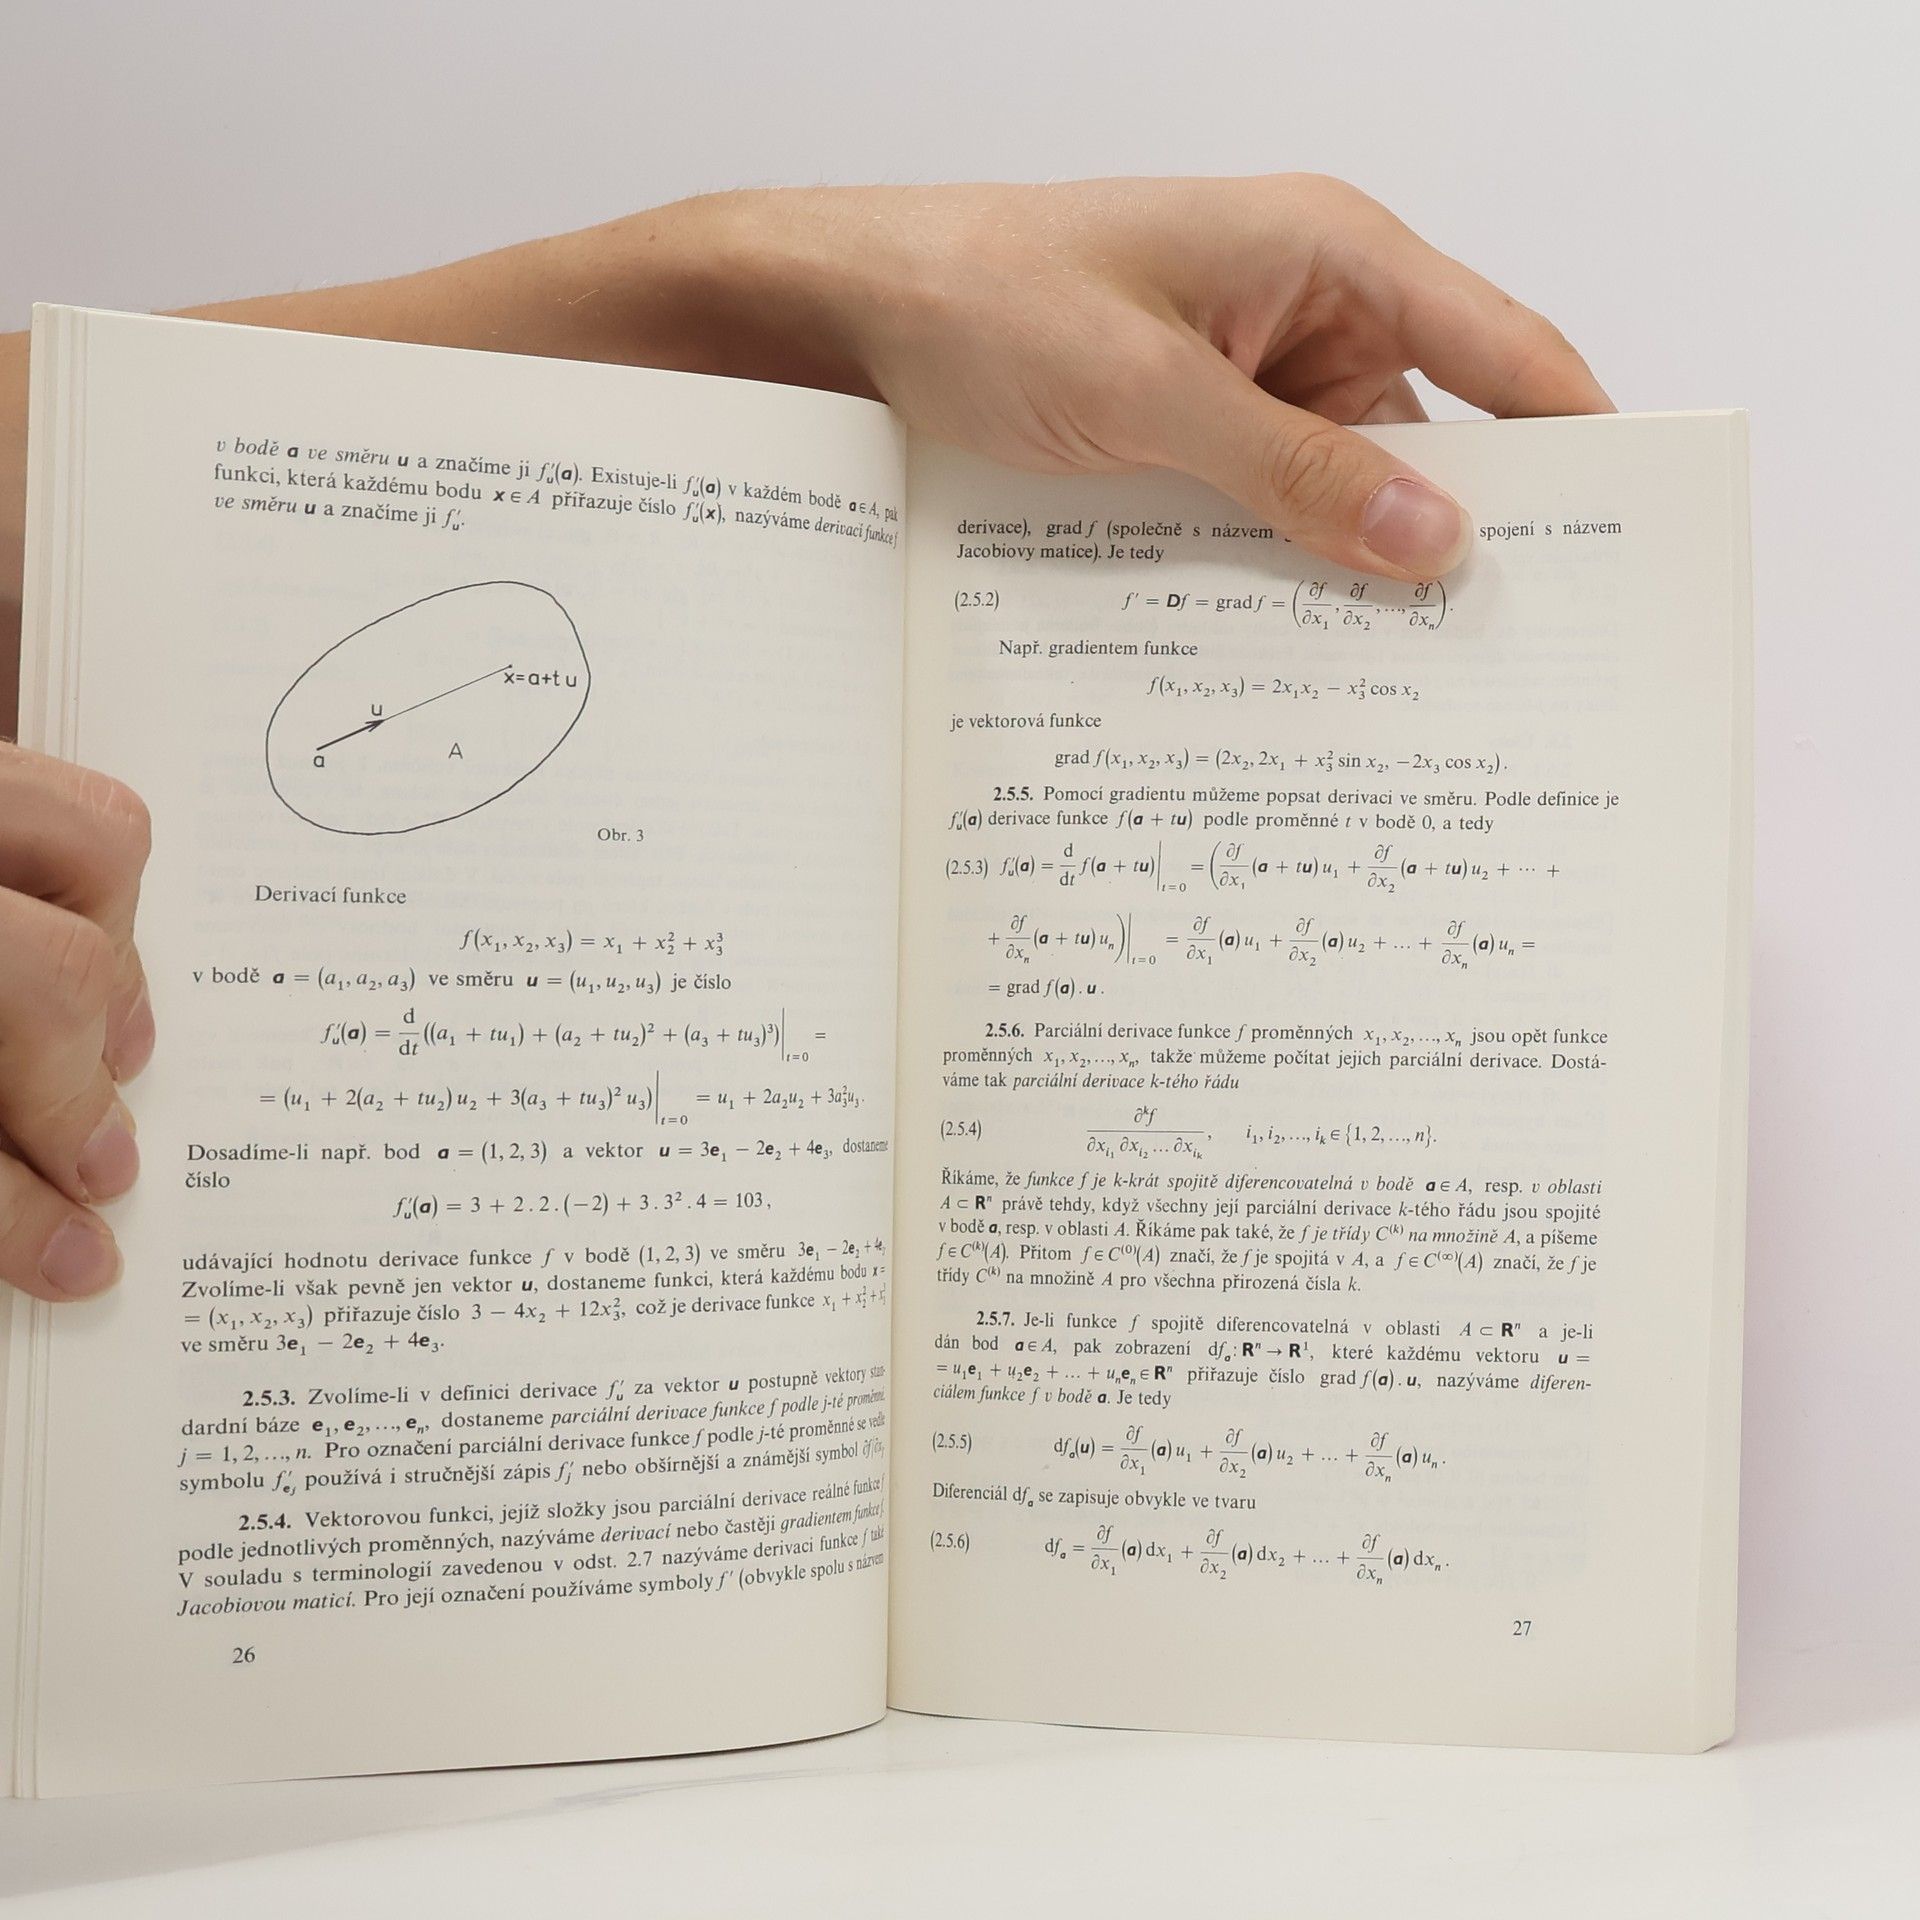 v bodě a ve směru u a značíme ji f′ᵤ(a). Existuje-li f′ᵤ(a) v každém bodě a ∈ A, pak
funkci, která každému bodu x ∈ A přiřazuje číslo f′ᵤ(x), nazýváme derivací funkce f
ve směru u a značíme ji f′ᵤ.
x=a+t u
u
a
A
Obr. 3
Derivací funkce
f(x₁, x₂, x₃) = x₁ + x₂² + x₃³
v bodě a = (a₁, a₂, a₃) ve směru u = (u₁, u₂, u₃) je číslo
f′ᵤ(a) = d/dt ((a₁ + tu₁) + (a₂ + tu₂)² + (a₃ + tu₃)³)|ₜ₌₀ =
= (u₁ + 2(a₂ + tu₂) u₂ + 3(a₃ + tu₃)² u₃)|ₜ₌₀ = u₁ + 2a₂u₂ + 3a₃²u₃.
Dosadíme-li např. bod a = (1, 2, 3) a vektor u = 3e₁ − 2e₂ + 4e₃, dostaneme
číslo
f′ᵤ(a) = 3 + 2 . 2 . (−2) + 3 . 3² . 4 = 103,
udávající hodnotu derivace funkce f v bodě (1, 2, 3) ve směru 3e₁ − 2e₂ + 4e₃
Zvolíme-li však pevně jen vektor u, dostaneme funkci, která každému bodu x =
= (x₁, x₂, x₃) přiřazuje číslo 3 − 4x₂ + 12x₃², což je derivace funkce x₁ + x₂² + x₃³
ve směru 3e₁ − 2e₂ + 4e₃.
2.5.3. Zvolíme-li v definici derivace f′ᵤ za vektor u postupně vektory stan-
dardní báze e₁, e₂, ..., eₙ, dostaneme parciální derivace funkce f podle j-té proměnné,
j = 1, 2, ..., n. Pro označení parciální derivace funkce f podle j-té proměnné se vedle
symbolu f′ₑⱼ používá i stručnější zápis f′ⱼ nebo obšírnější a známější symbol ∂f/∂xⱼ
2.5.4. Vektorovou funkci, jejíž složky jsou parciální derivace reálné funkce f
podle jednotlivých proměnných, nazýváme derivací nebo častěji gradientem funkce f.
V souladu s terminologií zavedenou v odst. 2.7 nazýváme derivaci funkce f také
Jacobiovou maticí. Pro její označení používáme symboly f′ (obvykle spolu s názvem
26
derivace), grad f (společně s názvem spojení s názvem
Jacobiovy matice). Je tedy
(2.5.2) f′ = Df = grad f = (∂f/∂x₁, ∂f/∂x₂, ..., ∂f/∂xₙ).
Např. gradientem funkce
f(x₁, x₂, x₃) = 2x₁x₂ − x₃² cos x₂
je vektorová funkce
grad f(x₁, x₂, x₃) = (2x₂, 2x₁ + x₃² sin x₂, −2x₃ cos x₂).
2.5.5. Pomocí gradientu můžeme popsat derivaci ve směru. Podle definice je
f′ᵤ(a) derivace funkce f(a + tu) podle proměnné t v bodě 0, a tedy
(2.5.3) f′ᵤ(a) = d/dt f(a + tu)|ₜ₌₀ = (∂f/∂x₁ (a + tu) u₁ + ∂f/∂x₂ (a + tu) u₂ + ... +
+ ∂f/∂xₙ (a + tu) uₙ)|ₜ₌₀ = ∂f/∂x₁ (a) u₁ + ∂f/∂x₂ (a) u₂ + ... + ∂f/∂xₙ (a) uₙ =
= grad f(a) . u .
2.5.6. Parciální derivace funkce f proměnných x₁, x₂, ..., xₙ jsou opět funkce
proměnných x₁, x₂, ..., xₙ, takže můžeme počítat jejich parciální derivace. Dostá-
váme tak parciální derivace k-tého řádu
(2.5.4) ∂ᵏf/∂x_{i₁} ∂x_{i₂} ... ∂x_{iₖ}, i₁, i₂, ..., iₖ ∈ {1, 2, ..., n}.
Říkáme, že funkce f je k-krát spojitě diferencovatelná v bodě a ∈ A, resp. v oblasti
A ⊂ Rⁿ právě tehdy, když všechny její parciální derivace k-tého řádu jsou spojité
v bodě a, resp. v oblasti A. Říkáme pak také, že f je třídy C⁽ᵏ⁾ na množině A, a píšeme
f ∈ C⁽ᵏ⁾(A). Přitom f ∈ C⁽⁰⁾(A) značí, že f je spojitá v A, a f ∈ C^(∞)(A) značí, že f je
třídy C⁽ᵏ⁾ na množině A pro všechna přirozená čísla k.
2.5.7. Je-li funkce f spojitě diferencovatelná v oblasti A ⊂ Rⁿ a je-li
dán bod a ∈ A, pak zobrazení dfₐ: Rⁿ → R¹, které každému vektoru u =
= u₁e₁ + u₂e₂ + ... + uₙeₙ ∈ Rⁿ přiřazuje číslo grad f(a) . u, nazýváme diferen-
ciálem funkce f v bodě a. Je tedy
(2.5.5) dfₐ(u) = ∂f/∂x₁ (a) u₁ + ∂f/∂x₂ (a) u₂ + ... + ∂f/∂xₙ (a) uₙ .
Diferenciál dfₐ se zapisuje obvykle ve tvaru
(2.5.6) dfₐ = ∂f/∂x₁ (a) dx₁ + ∂f/∂x₂ (a) dx₂ + ... + ∂f/∂xₙ (a) dxₙ .
27